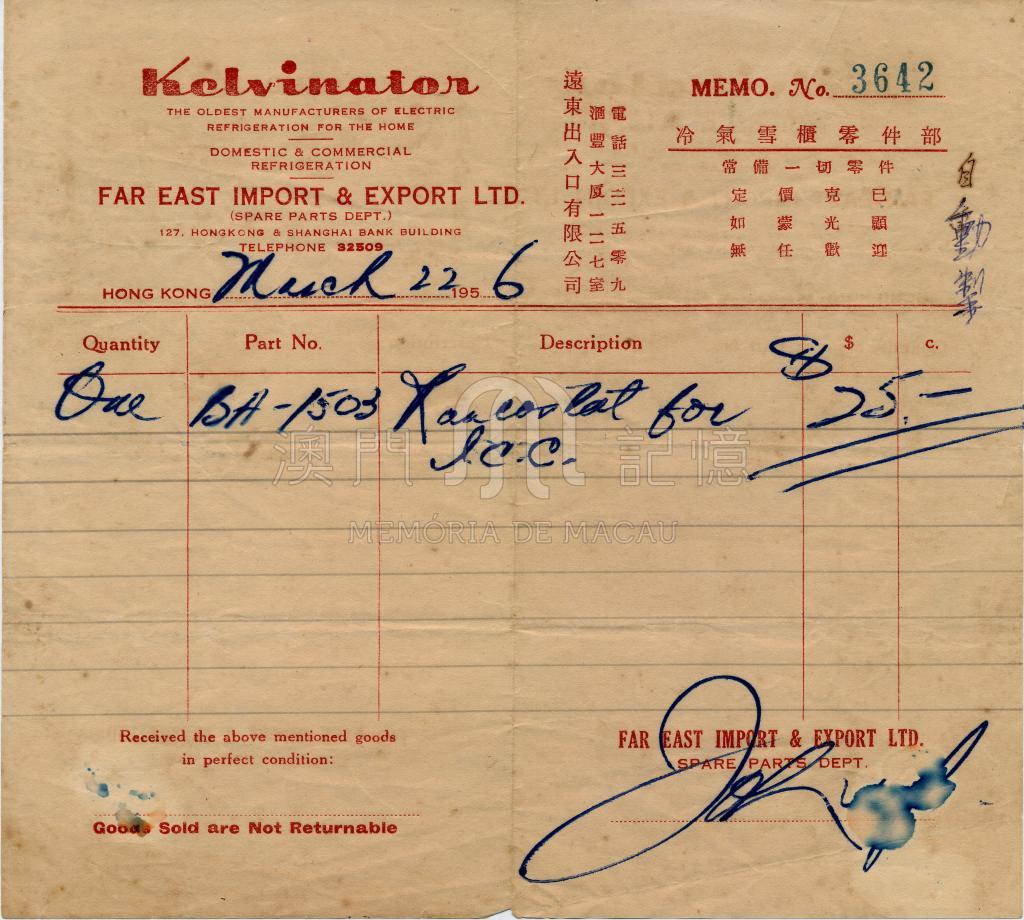 Kelvinator
THE OLDEST MANUFACTURERS OF ELECTRIC
REFRIGERATION FOR THE HOME
DOMESTIC & COMMERCIAL
REFRIGERATION
FAR EAST IMPORT & EXPORT LTD.
(SPARE PARTS DEPT.)
127, HONGKONG & SHANGHAI BANK BUILDING
TELEPHONE 32509
HONG KONG March 22 1956
遠東出入口有限公司
電話三二五零九
滙豐大厦一二七室
MEMO. No. 3642
冷氣雪櫃零件部
常備一切零件
定價克已
如蒙光顧
無任歡迎
自動掣
Quantity Part No. Description $ c.
One BH-1503 for $ 25.-
I.C.C.
澳門記憶
MEMÓRIA DE MACAU
Received the above mentioned goods
in perfect condition:
Goods Sold are Not Returnable
FAR EAST IMPORT & EXPORT LTD.
SPARE PARTS DEPT.